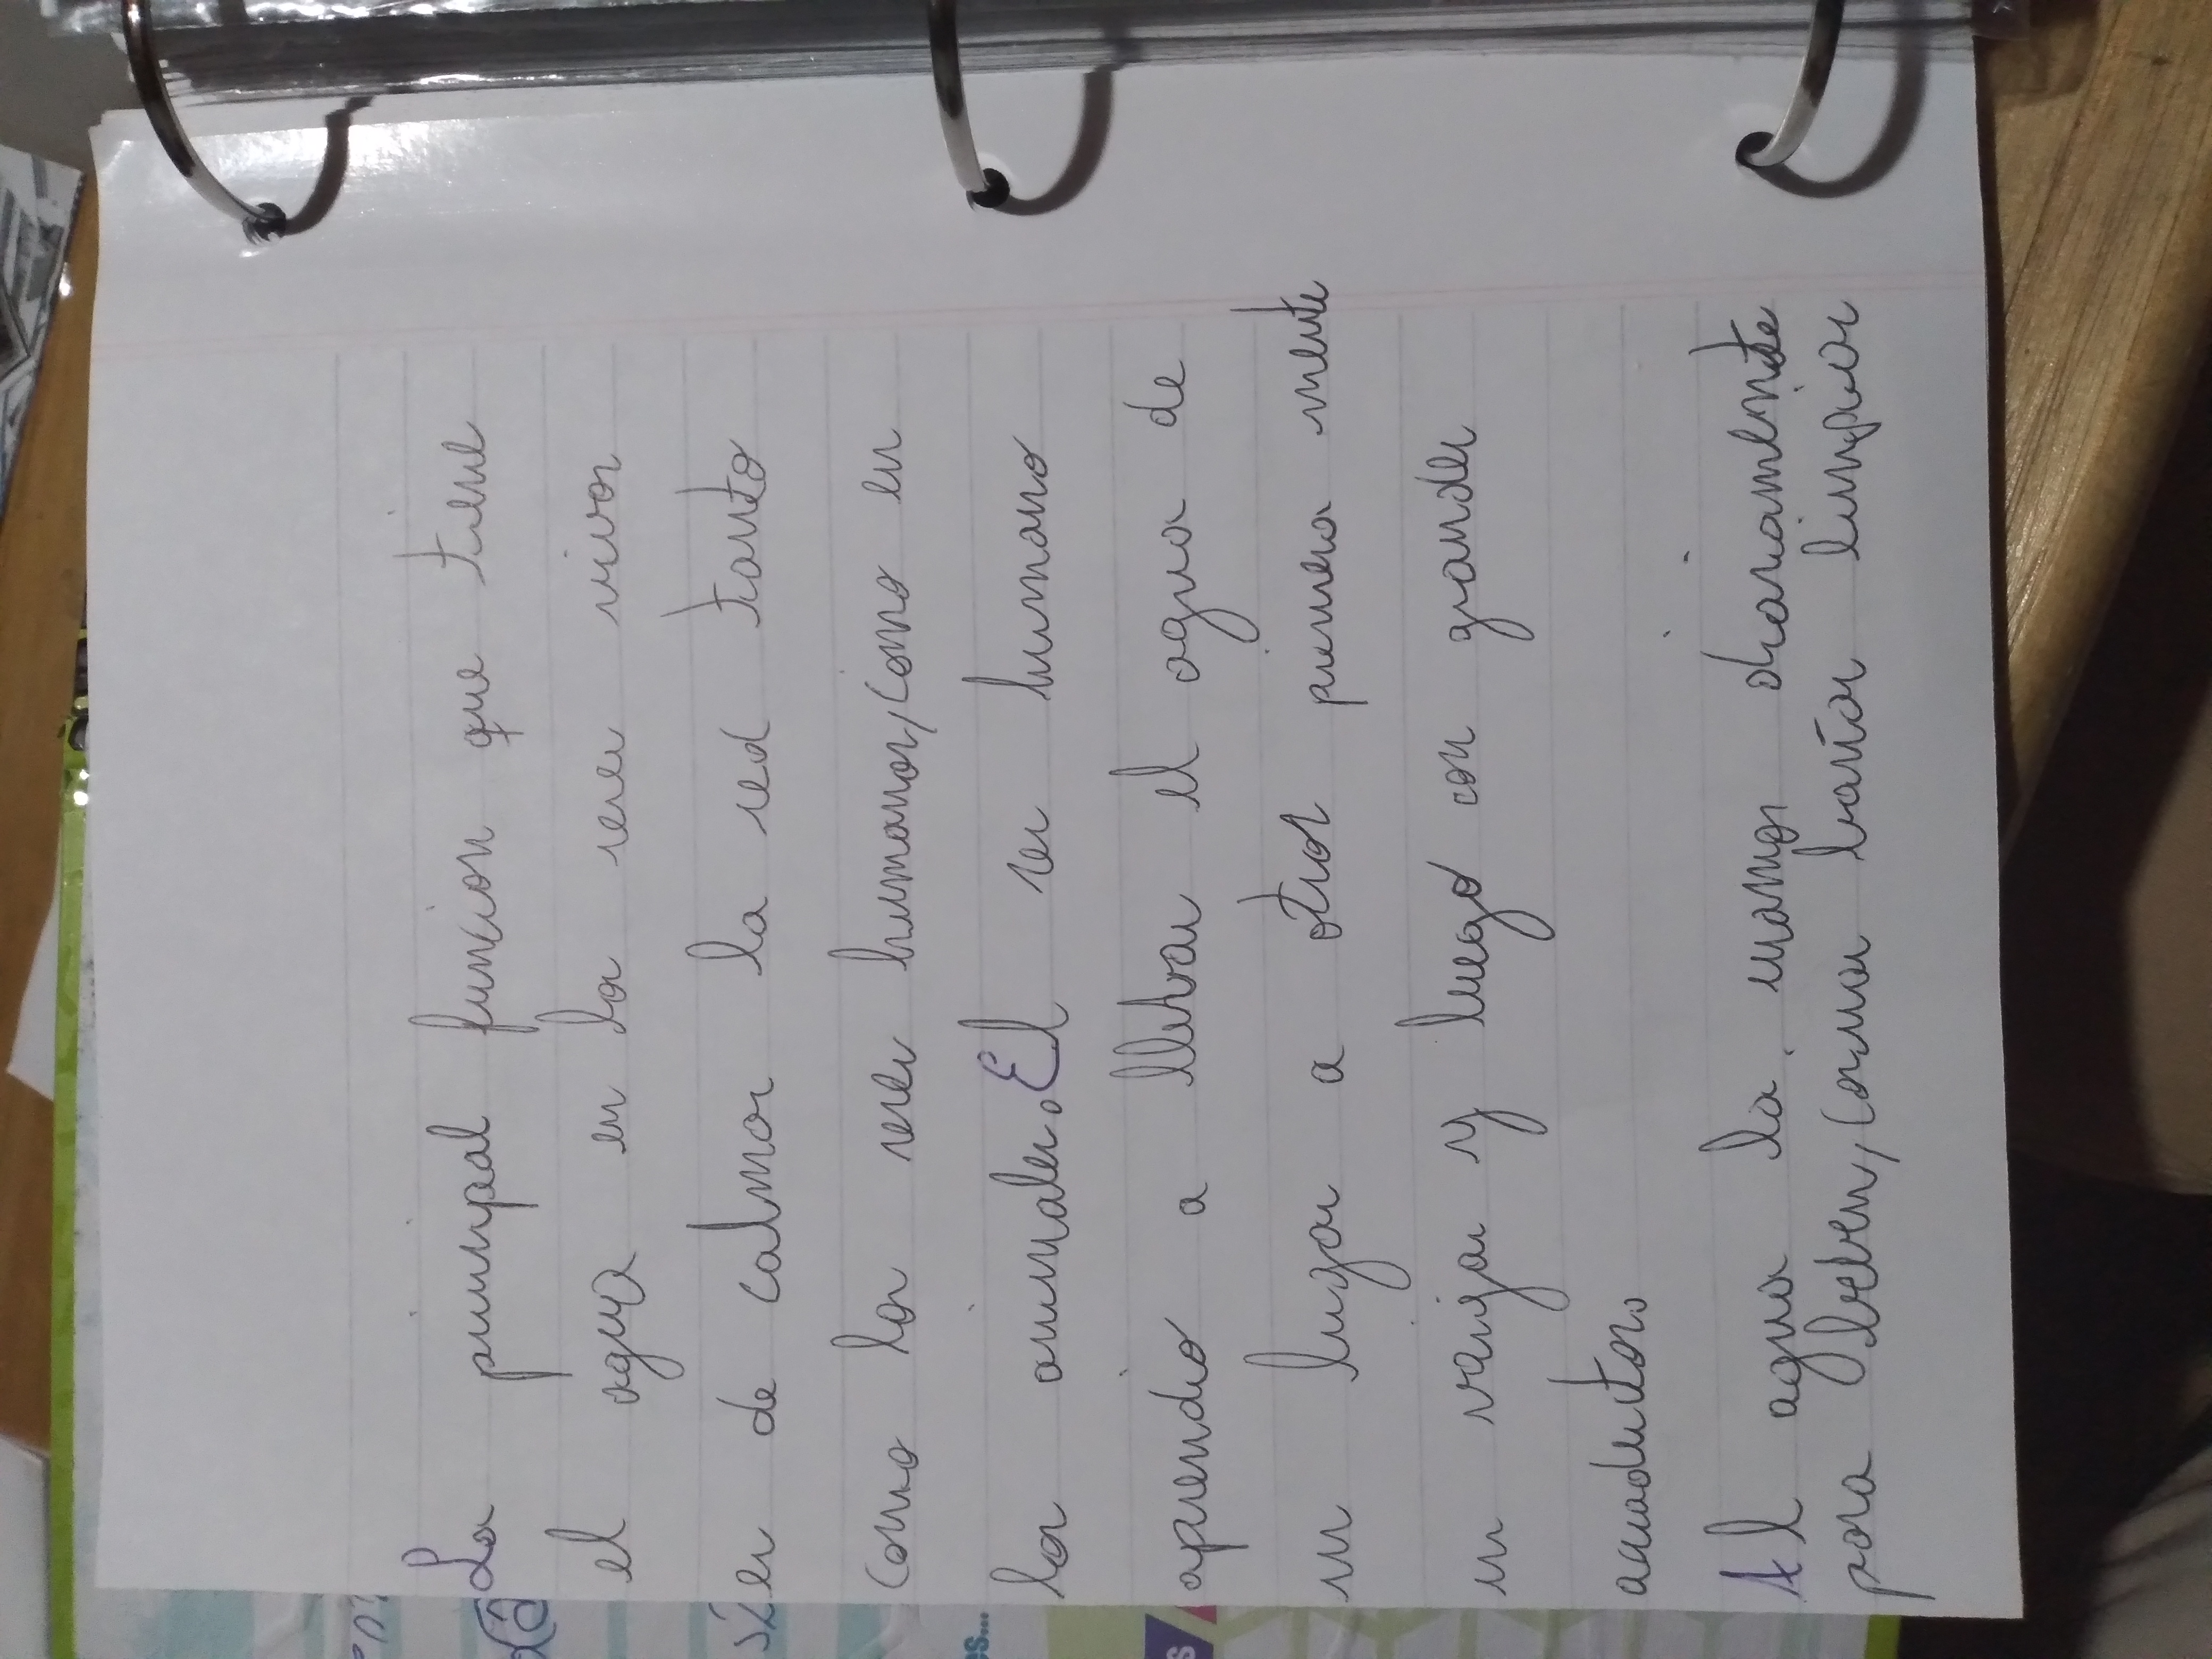 La principal funcion que tiene
el agua en los seres vivos
es de calmar la sed tanto
como los seres humanos, como en
los animales. El ser humano
aprendio a llevar el agua de
un lugar a otros primera mente
en vasijas y luego con grandes
acueductos.
Al agua la usamos diariamente
para beber, cosinar, bañar, limpiar